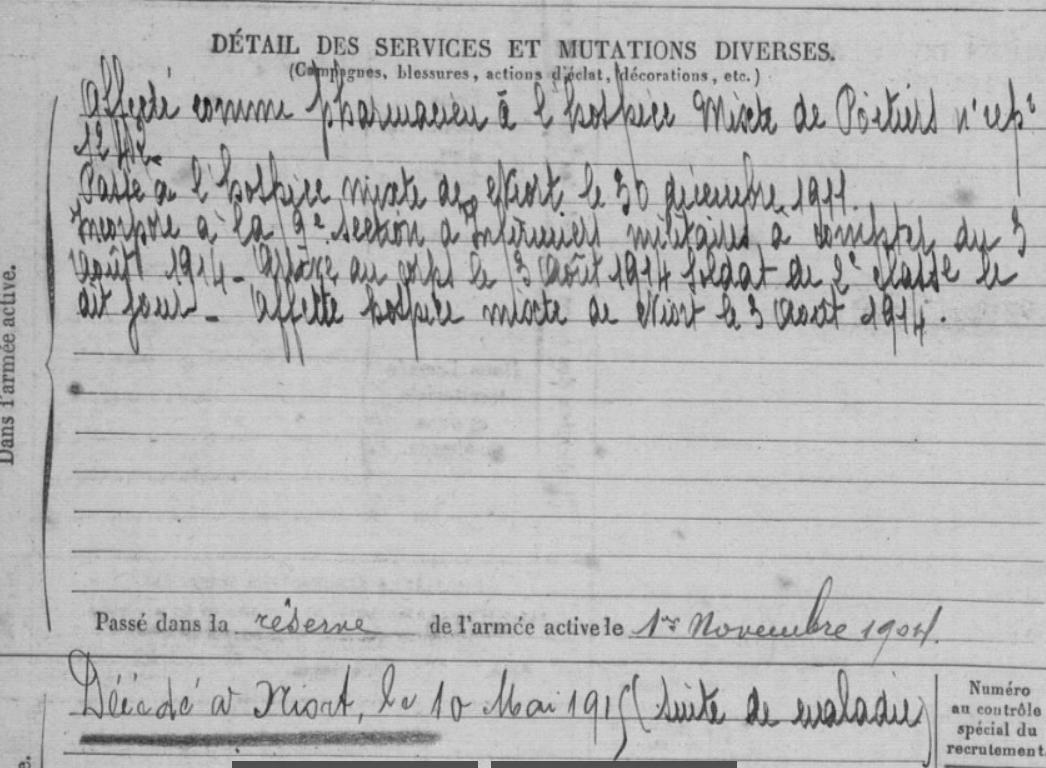 DÉTAIL DES SERVICES ET MUTATIONS DIVERSES.
(Campagnes, blessures, actions d'éclat, décorations, etc.)
Affecté comme pharmacien à l'hospice Mixte de Poitiers n° rep^re
Passé à l'hospice mixte de Niort le 30 décembre 1911.
Incorporé à la 9e section d'Infirmiers militaires, à compter du 3
Août 1914 - Arrivé au corps le 3 Août 1914 Soldat de 2e classe le
dit jour - Affecté hospice mixte de Niort le 3 Août 1914.
Dans l'armée active.
Passé dans la réserve de l'armée active le 1er Novembre 1904.
Décédé à Niort, le 10 Mai 1915 (suite de maladie)
Numéro
au contrôle
spécial du
recrutement